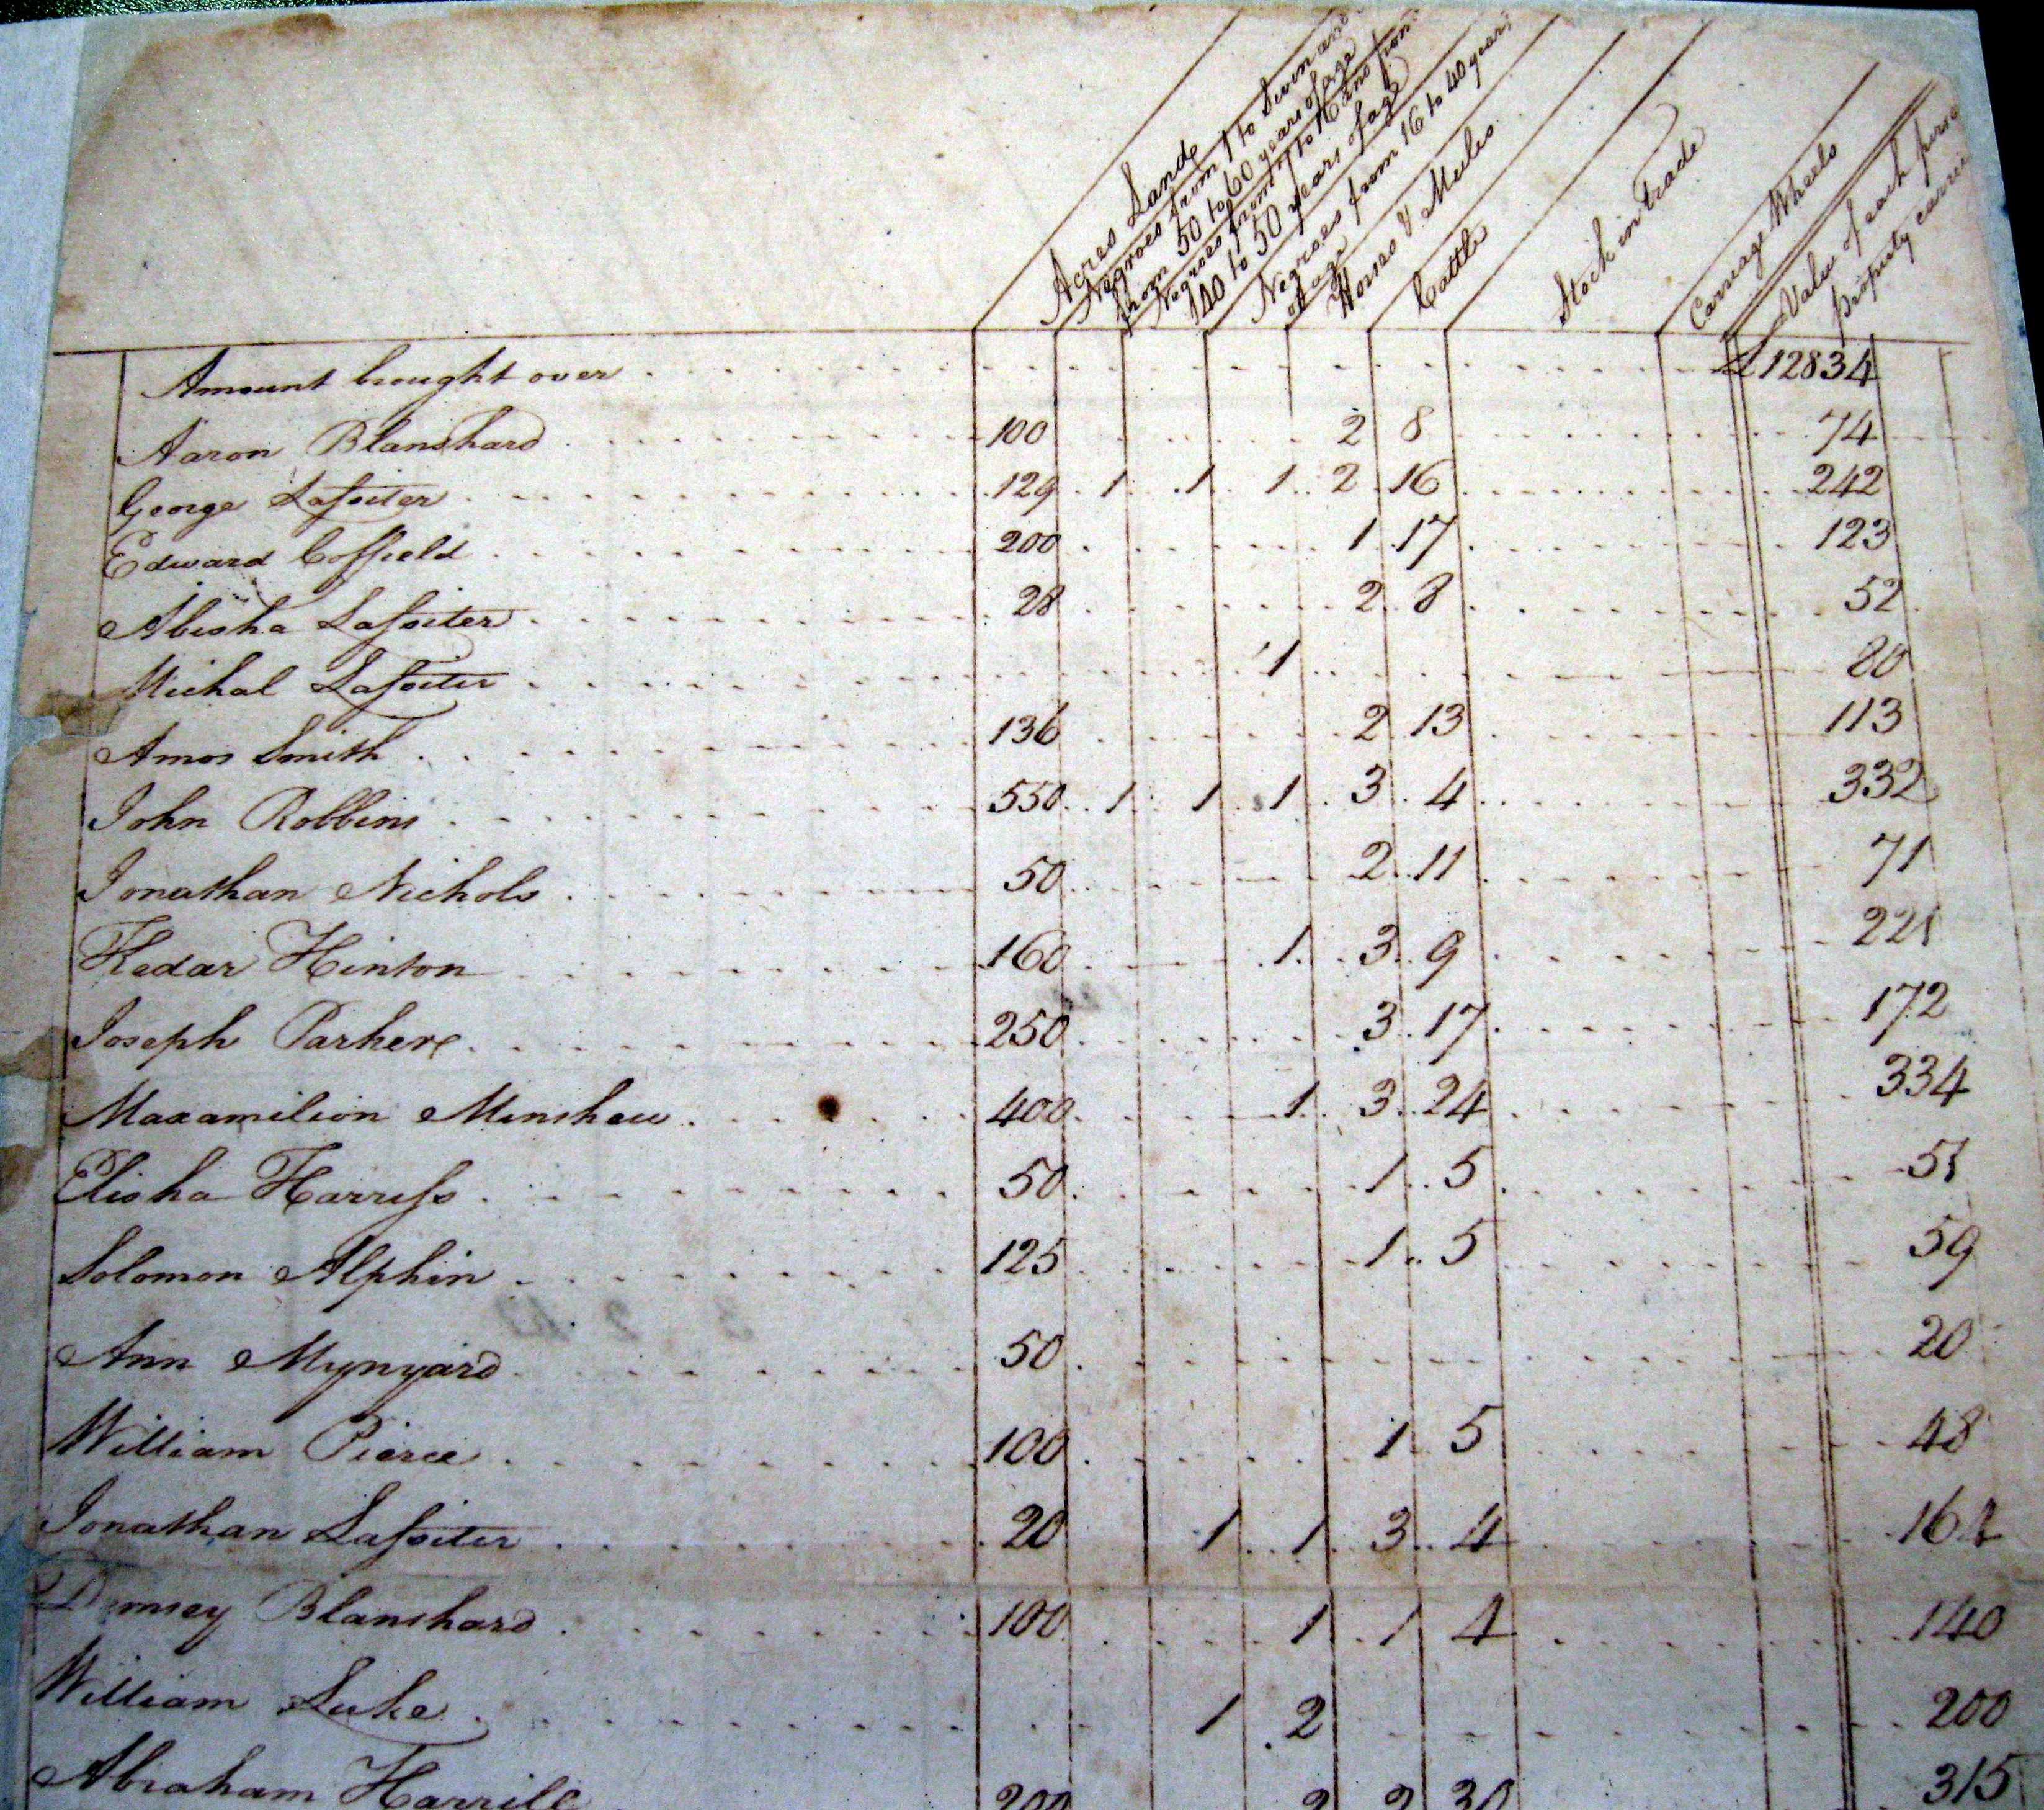 Acres Land
Negroes from 1 to Seven and
from 50 to 60 years of age
Negroes from 7 to 16 and from
40 to 50 years of age
Negroes from 16 to 40 years
of age
Horses & Mules
Cattle
Stock in trade
Carriage Wheels
Value of each
property
Amount brought over £12834
Aaron Blanshard 100 2 8 74
George Laſsiter 129 1 1 1 2 16 242
Edward Coffield 200 1 17 123
Abisha Laſsiter 28 2 8 52
Michal Laſsiter 1 80
Amos Smith 136 2 13 113
John Robbins 550 1 1 1 3 4 332
Jonathan Nichols 50 2 11 71
Kedar Hinton 160 1 3 9 221
Joseph Parker 250 3 17 172
Maxamilion Minshew 400 1 3 24 334
Elisha Harriſs 50 1 5 51
Solomon Alphin 125 1 5 59
Ann Mynyard 50 20
William Pierce 100 1 5 48
Jonathan Laſsiter 20 1 1 3 4 164
Demsey Blanshard 100 1 1 4 140
William Luke 1 2 200
Abraham Harrill 200 2 2 30 315